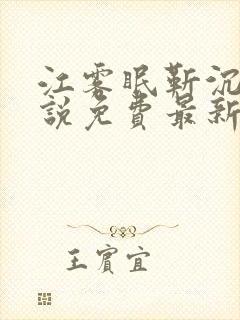 江雾眠靳沉
說免费最新
王賓宜